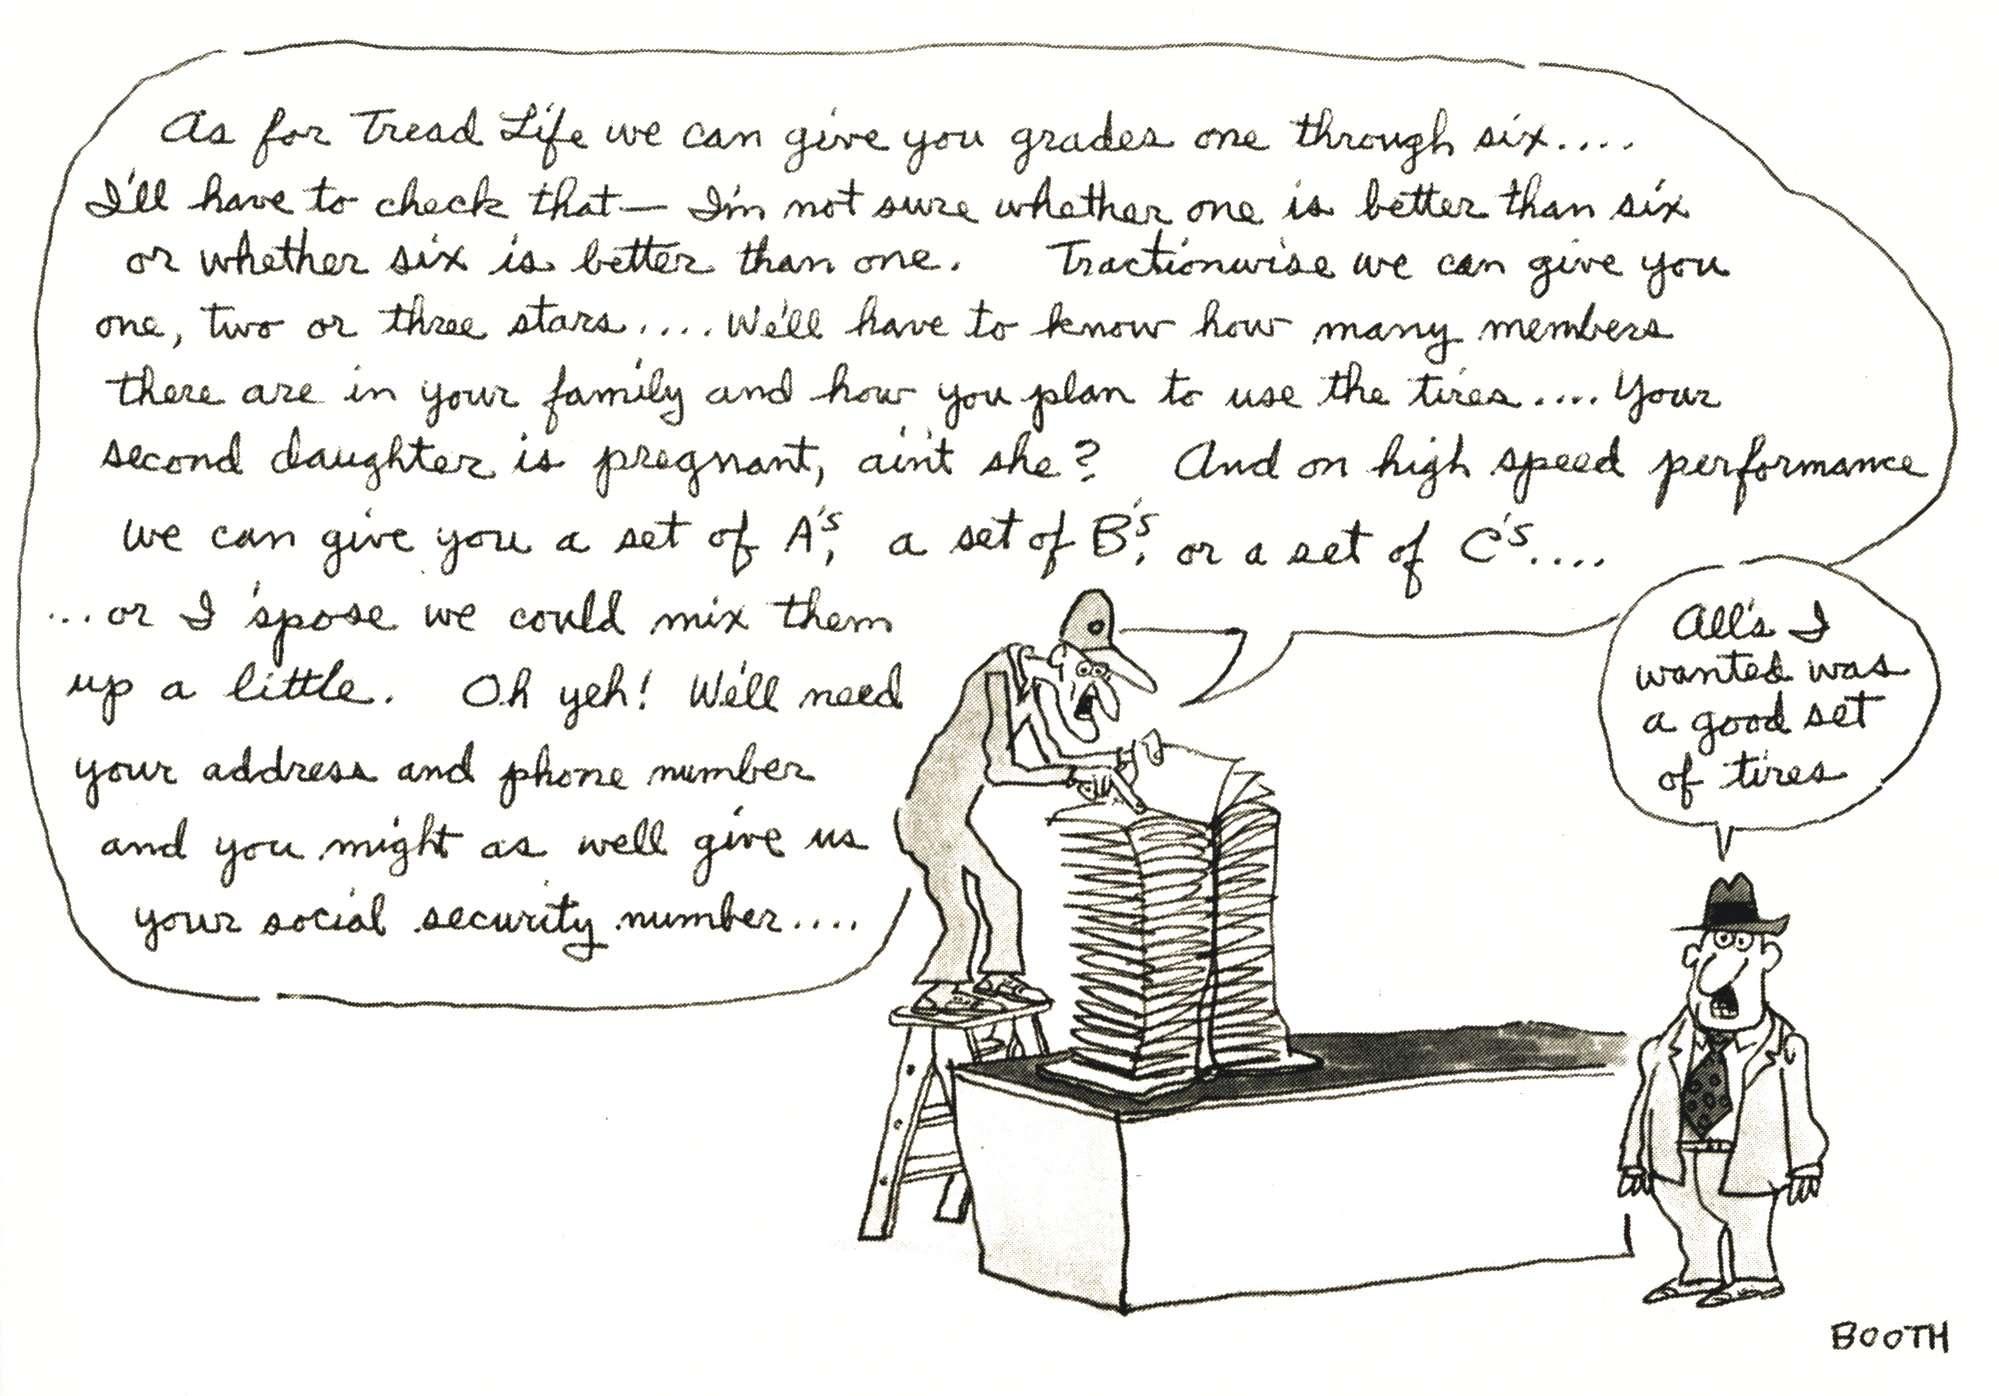 As for Tread Life we can give you grades one through six....
I'll have to check that — I'm not sure whether one is better than six
or whether six is better than one. Tractionwise we can give you
one, two or three stars.... We'll have to know how many members
there are in your family and how you plan to use the tires.... Your
second daughter is pregnant, ain't she? And on high speed performance
we can give you a set of A's, a set of B's, or a set of C's....
...or I 'spose we could mix them
up a little. Oh yeh! We'll need
your address and phone number
and you might as well give us
your social security number....
All's I
wanted was
a good set
of tires
BOOTH